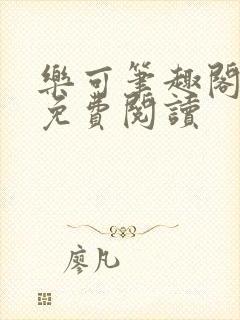 樂可筆趣閣
免費閱讀
廖凡